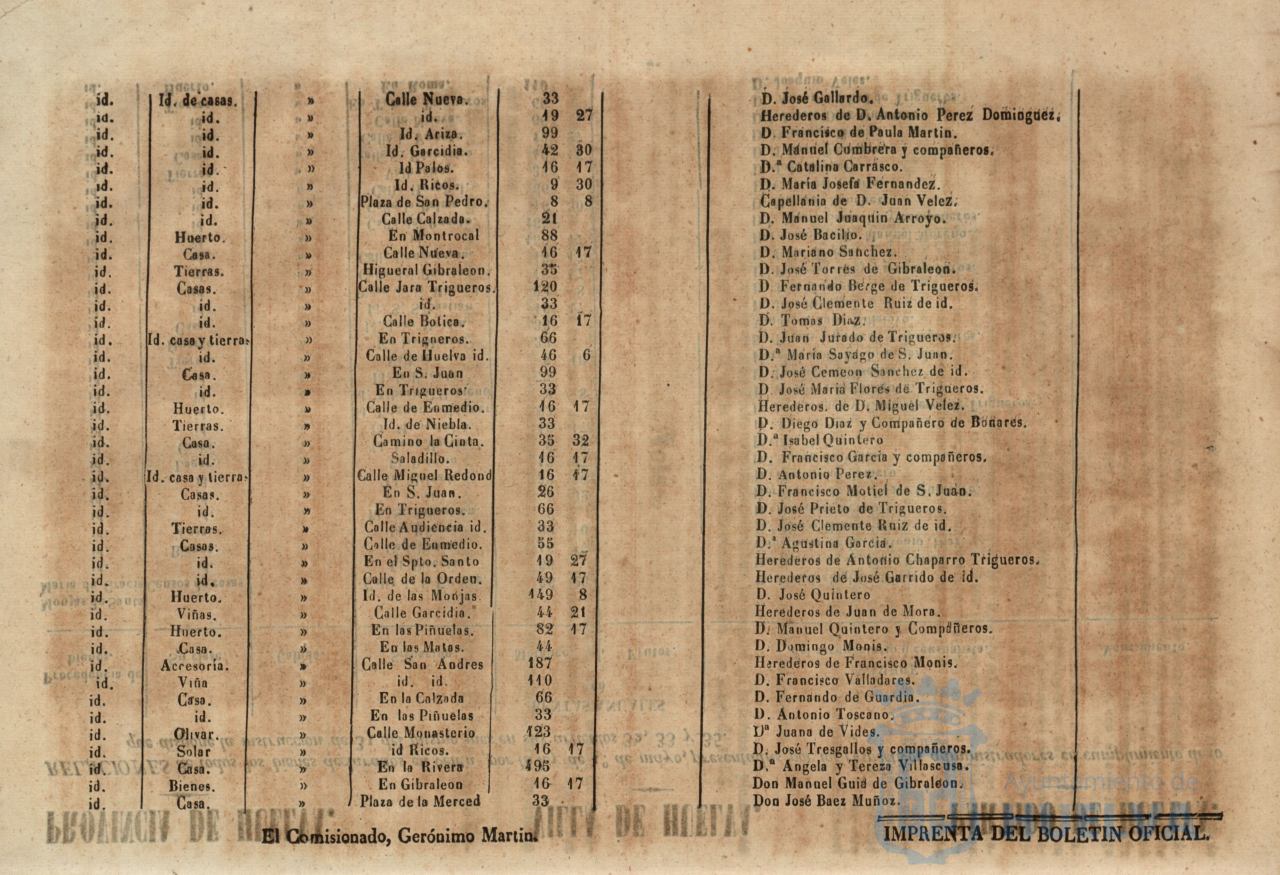 id. Id. de casas. » Calle Nueva. 33 D. José Gallardo.
id. id. » id. 19 27 Herederos de D. Antonio Perez Dominguez.
id. id. » Id. Ariza. 99 D. Francisco de Paula Martin.
id. id. » Id. Garcidia. 42 30 D. Manuel Cumbrera y compañeros.
id. id. » Id Palos. 16 17 D.ª Catalina Carrasco.
id. id. » Id. Ricos. 9 30 D. María Josefa Fernandez.
id. id. » Plaza de San Pedro. 8 8 Capellania de D. Juan Velez.
id. id. » Calle Calzada. 21 D. Manuel Juaquin Arroyo.
id. Huerto. » En Montrocal 88 D. José Bacilio.
id. Casa. » Calle Nueva. 16 17 D. Mariano Sanchez.
id. Tierras. » Higueral Gibraleon. 35 D. José Torres de Gibraleon.
id. Casas. » Calle Jara Trigueros. 120 D Fernando Berge de Trigueros.
id. id. » id. 33 D. José Clemente Ruiz de id.
id. id. » Calle Botica. 16 17 D. Tomas Diaz.
id. Id. casa y tierra. » En Trigneros. 66 D. Juan Jurado de Trigueros.
id. id. » Calle de Huelva id. 46 6 D.ª María Sayago de S. Juan.
id. Casa. » En S. Juan 99 D. José Cemeon Sanchez de id.
id. id. » En Trigueros 33 D. José María Flores de Trigueros.
id. Huerto. » Calle de Enmedio. 16 17 Herederos. de D. Miguel Velez.
id. Tierras. » Id. de Niebla. 33 D. Diego Diaz y Compañero de Bonares.
id. Casa. » Camino la Cinta. 35 32 D.ª Isabel Quintero
id. id. » Saladillo. 16 17 D. Francisco García y compañeros.
id. Id. casa y tierra. » Calle Miguel Redond 16 17 D. Antonio Perez.
id. Casas. » En S. Juan. 26 D. Francisco Motiel de S. Juan.
id. id. » En Trigueros. 66 D. José Prieto de Trigueros.
id. Tierras. » Calle Audiencia id. 33 D. José Clemente Ruiz de id.
id. Casas. » Calle de Enmedio. 55 D.ª Agustina García.
id. id. » En el Spto. Santo 19 27 Herederos de Antonio Chaparro Trigueros.
id. id. » Calle de la Orden. 49 17 Herederos de José Garrido de id.
id. Huerto. » Id. de las Monjas 149 8 D. José Quintero
id. Viñas. » Calle Garcidia. 44 21 Herederos de Juan de Mora.
id. Huerto. » En las Piñuelas. 82 17 D. Manuel Quintero y Compañeros.
id. Casa. » En las Matas. 44 D. Domingo Monis.
id. Accesoria. » Calle San Andres 187 Herederos de Francisco Monis.
id. Viña » id. id. 110 D. Francisco Valladares.
id. Casa. » En la Calzada 66 D. Fernando de Guardia.
id. id. » En las Piñuelas 33 D. Antonio Toscano.
id. Olivar. » Calle Monasterio 123 Dª Juana de Vides.
id. Solar » id Ricos. 16 17 D. José Tresgallos y compañeros.
id. Casa. » En la Rivera 495 D.ª Angela y Tereza Villascusa.
id. Bienes. » En Gibraleon 16 17 Don Manuel Guia de Gibraleon.
id. Casa. » Plaza de la Merced 33 Don José Baez Muñoz.
El Comisionado, Gerónimo Martin.
IMPRENTA DEL BOLETIN OFICIAL.
Ayuntamiento de